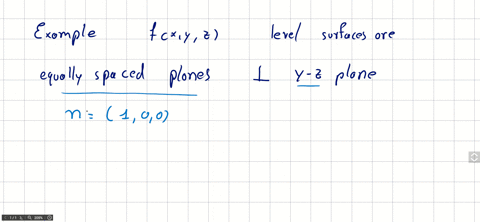 Example f(x,y,z) level surfaces are
equally spaced planes ⊥ y-z plane
n = (1,0,0)